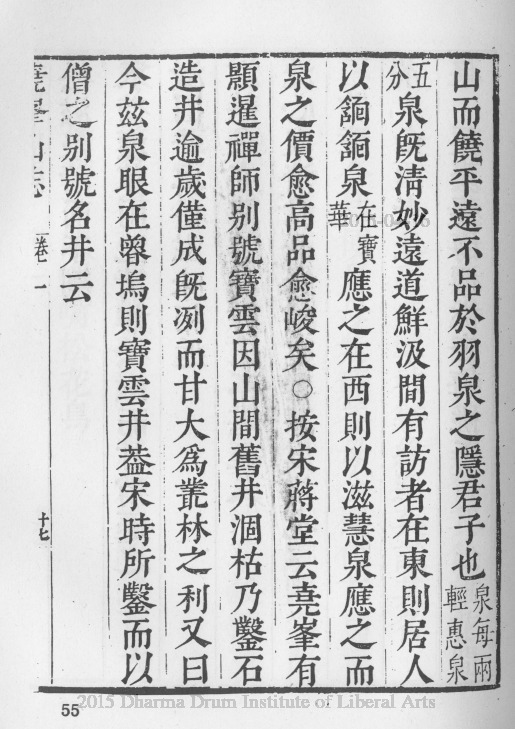 山而饒平遠不品於羽泉之隱君子也泉每兩輕惠泉
五分泉旣清妙遠道鮮汲間有訪者在東則居人
以餇餇泉在寶華應之在西則以滋慧泉應之而
泉之價愈高品愈峻矣○按宋蔣堂云堯峯有
顥暹禪師别號寶雲因山間舊井涸枯乃鑿石
造井逾歲僅成旣冽而甘大爲叢林之利又曰
今兹泉眼在塢則寶雲井葢宋時所鑿而以
僧之别號名井云
堯峯山志 卷一 十七
55
2015 Dharma Drum Institute of Liberal Arts